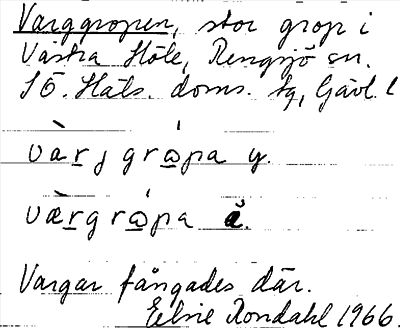 Varggropen, stor grop i
Västra Höle, Rengsjö sn.
SÖ. Häls. doms. sg, Gävl. l
vàr̲j grώ̲pa y.
væ̀r̲grώ̲pa ä.
Vargar fångades där.
Elsie Rondahl 1966.